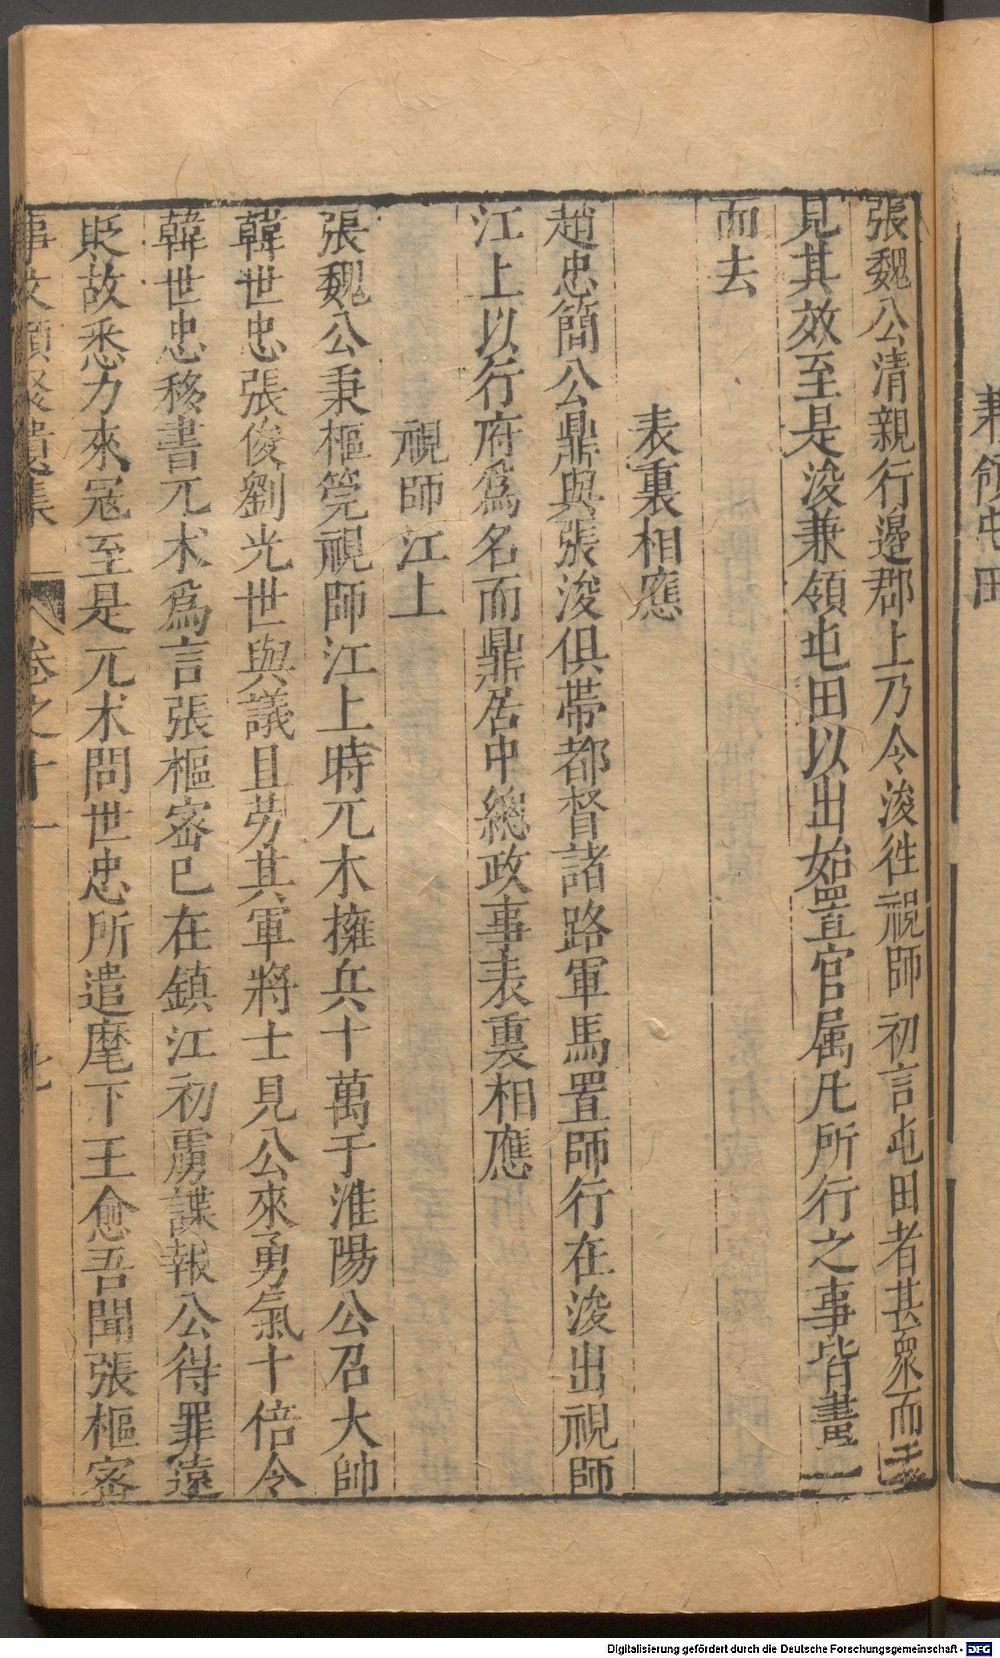 兼領屯田
張魏公清親行邊郡上乃令浚徃視師初言屯田者甚眾而
見其效至是浚兼領屯田以出始置官属凢所行之事皆畫一
而去
表裏相應
趙忠簡公鼎與張浚俱帶都督諸路軍馬置師行在浚出視師
江上以行府爲名而鼎居中總政事表裏相應
視師江上
張魏公秉樞筦視師江上時兀木擁兵十萬于淮陽公召大帥
韓世忠張俊劉光世與議且労其軍將士見公來勇氣十倍令
韓世忠移書兀术爲言張樞密已在鎮江初虜諜報公得罪遠
貶故悉力來冦至是兀术問世忠所遣麾下王愈吾聞張樞密
事文類聚遺集 卷之十一
Digitalisierung gefördert durch die Deutsche Forschungsgemeinschaft - DFG